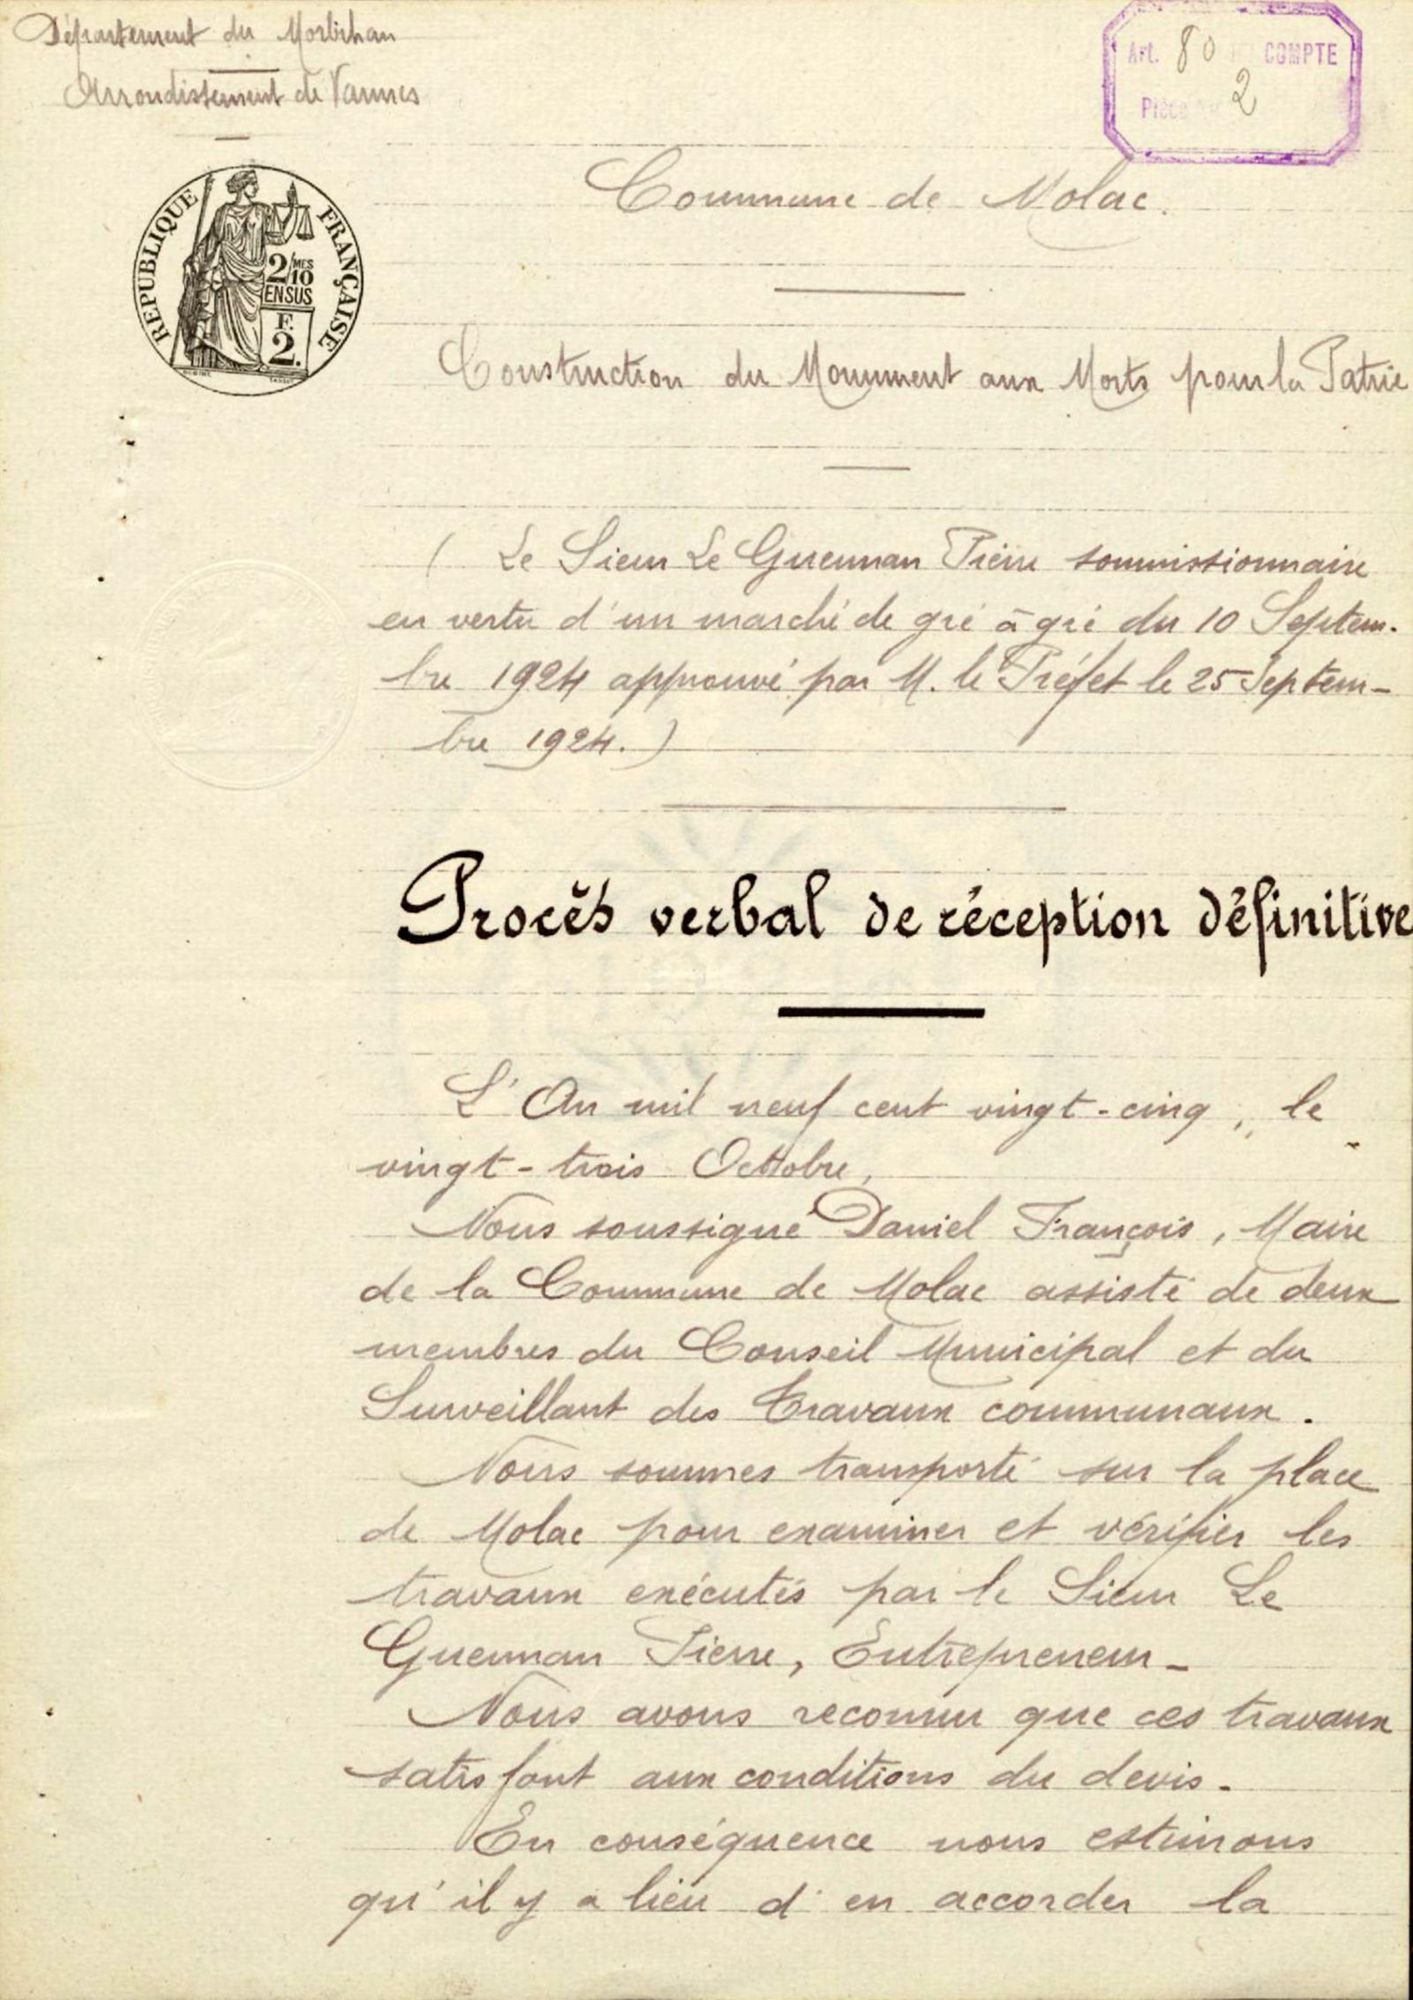 Département du Morbihan
Arrondissement de Vannes
Art. 80 COMPTE
Pièce 2
RÉPUBLIQUE FRANÇAISE
2/10 MES
EN SUS
F.
2.
Commune de Molac.
Construction du Monument aux Morts pour la Patrie
( Le Sieur Le Guennan Pierre soumissionnaire
en vertu d'un marché de gré à gré du 10 Septem-
bre 1924 approuvé par M. le Préfet le 25 Septem-
bre 1924. )
Procès verbal de réception définitive
L'An mil neuf cent vingt-cinq, le
vingt-trois Octobre,
Nous soussigné Daniel François, Maire
de la Commune de Molac assisté de deux
membres du Conseil Municipal et du
Surveillant des Travaux communaux.
Nous sommes transporté sur la place
de Molac pour examiner et vérifier les
travaux exécutés par le Sieur Le
Guennan Pierre, Entrepreneur-
Nous avons reconnu que ces travaux
satisfont aux conditions du devis-
En conséquence nous estimons
qu'il y a lieu d'en accorder la